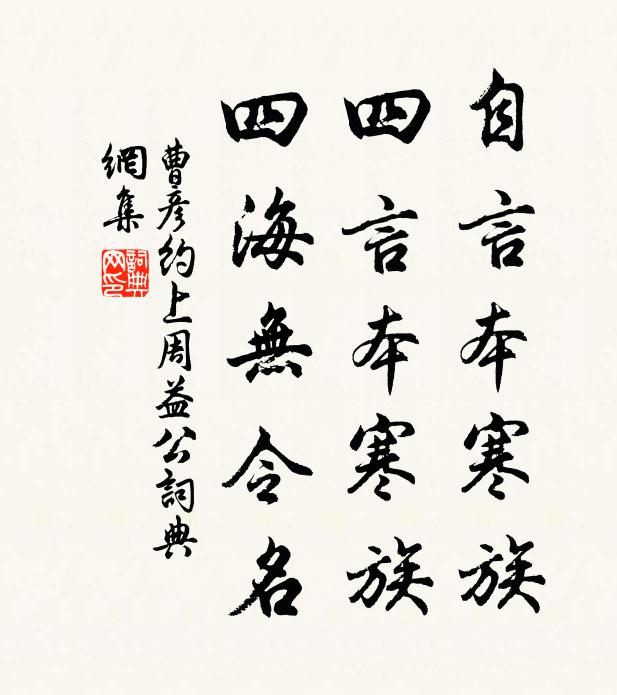 自言本寒族
四言本寒族
四海無令名
曹彦約上周益公詞典
網集
詞典网印